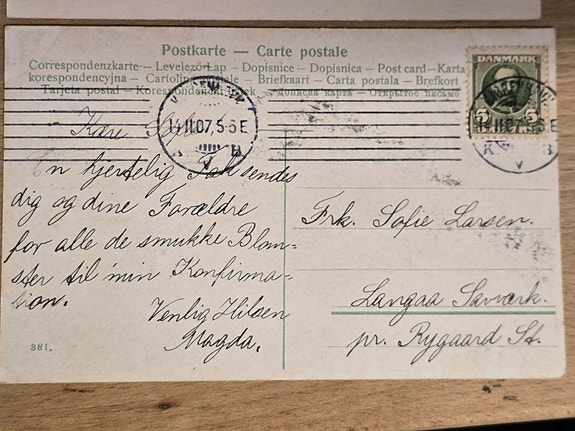 Postkarte — Carte postale
Correspondenzkarte — Levelező-Lap — Dopisnice — Dopisnica — Post card — Karta
korespondencyjna — Cartolina postale — Briefkaart — Carta postala — Brefkort
Tarjeta postal — Korespondenční lístek — Дописна карта — Открытое письмо
DANMARK
5 5
14.11.07. 5-6 E
K B
14.11.07. 5-6 E
K B
Kære
En hjertelig Tak sendes
dig og dine Forældre
for alle de smukke Blom-
ster til min Konfirma-
tion.
Venlig Hilsen
Magda.
381.
Frk. Sofie Larsen.
Langaa Savværk.
pr. Rygaard St.